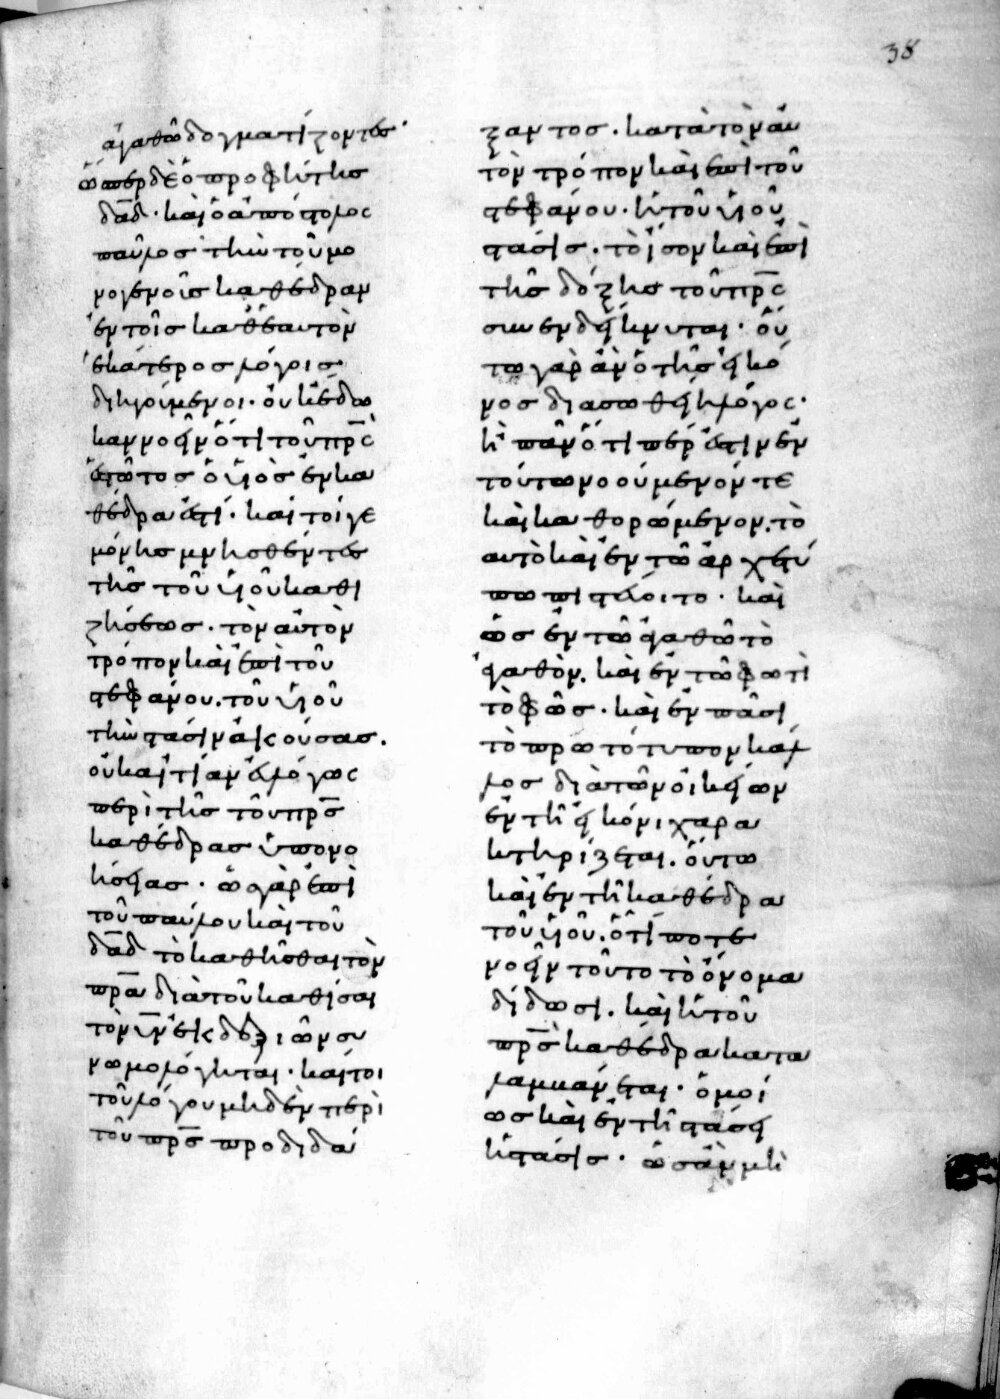 38
ἀγαθῶ δογματίζοντες·
ὥσπερ δὲ ὁ προφήτης
δᾱδ· καὶ ὁ ἀπόστολος
παῦλος τὴν τοῦ μο
νογενοῦς καθέδραν
ἐν τοῖς καθ' ἑαυτὸν
ἑκάτερος λόγοις
διηγούμενοι· οὐκ ἔδω
καν νοεῖν ὅτι τοῦ πρ̅ς
ἑστῶτος ὁ υἱὸς ἐν κα
θέδρα ἐστί· καίτοι γε
μόνης μνησθέντες
τῆς τοῦ υἱοῦ καθι
ζήσεως· τὸν αὐτὸν
τρόπον καὶ ἐπὶ τοῦ
στεφάνου. τοῦ υἱοῦ
τὴν στάσιν ἀκούσας.
οὐκ αἰτίαν ὁ λόγος
περὶ τῆς τοῦ πρ̅ς
καθέδρας ὑπονο
ήσειας· ὡς γὰρ ἐπὶ
τοῦ παύλου καὶ τοῦ
δᾱδ τὸ καθῆσθαι τὸν
πρ̅α διὰ τοῦ καθίσαι
τὸν υ̅ν ἐκ δεξιῶν συ
νωμολόγηται· καίτοι
τοῦ λόγου μηδὲν περὶ
τοῦ πρ̅ς προδιδά
ξαντος· κατὰ τὸν αὐ
τὸν τρόπον καὶ ἐπὶ τοῦ
στεφάνου· ἡ τοῦ υἱοῦ
στάσις· τὸ ἴσον καὶ ἐπὶ
τῆς δόξης τοῦ πρ̅ς
συνενδείκνυται· οὕ
τω γὰρ ἂν ὁ τῆς εἰκό
νος διασωθείη λόγος·
εἰ πᾶν ὅτι πέρ ἐστιν ἐν
τούτω νοούμενόν τε
καὶ καθορώμενον, τὸ
αὐτὸ καὶ ἐν τῶ ἀρχετύ
πω πιστεύοιτο· καὶ
ὡς ἐν τῶ ἀγαθῶ τὸ
ἀγαθὸν, καὶ ἐν τῶ φωτὶ
τὸ φῶς· καὶ ἐν πᾶσι
τὸ πρωτότυπον κάλ
λος διὰ τῶν οἰκείων
ἐν τῆ εἰκόνι χαρα
κτηρίζεται. οὕτω
καὶ ἐν τῆ καθέδρα
τοῦ υἱοῦ, ὅτι ποτε
νοεῖν τοῦτο τὸ ὄνομα
δίδωσι. καὶ ἡ τοῦ
πρ̅ς καθέδρα κατα
λαμβάνεται· ὁμοί
ως καὶ ἐν τῆ στάσει
ἡ στάσις· ὡς ἂν μὴ